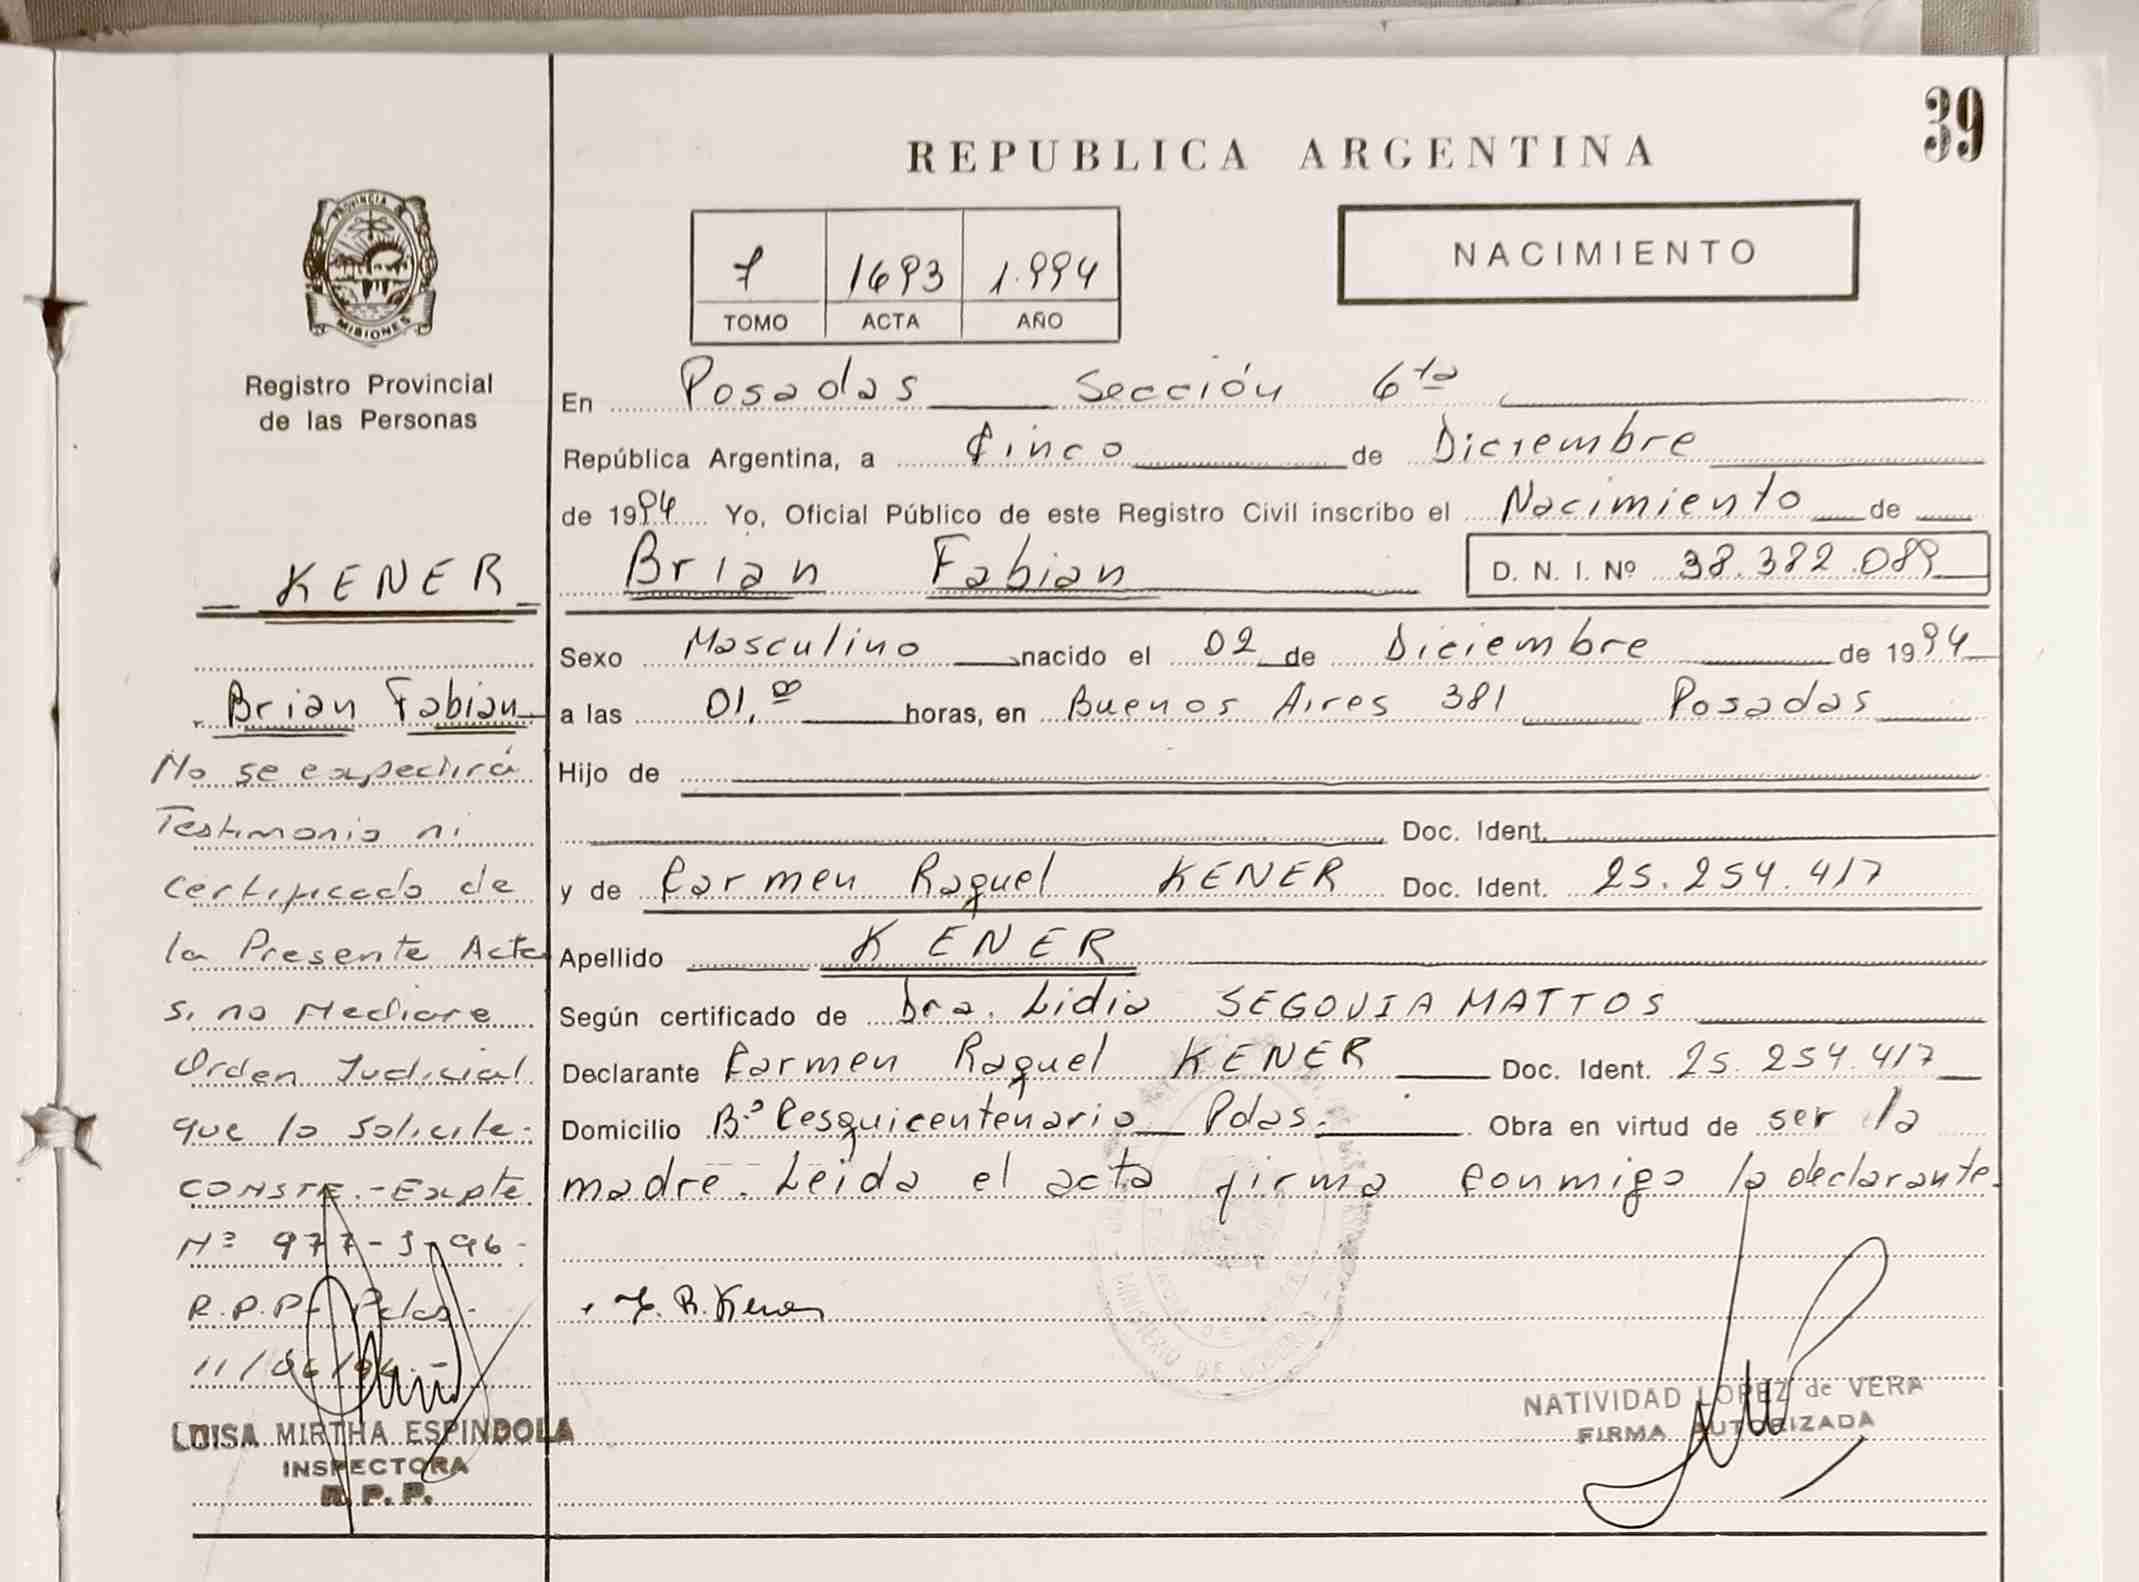 39
REPUBLICA ARGENTINA
NACIMIENTO
7 1693 1.994
TOMO ACTA AÑO
PROVINCIA DE
MISIONES
Registro Provincial
de las Personas
KENER
Brian Fabian
No se expedirá
Testimonio ni
Certificado de
la Presente Acta
si no Mediare
Orden Judicial
que lo solicite.
CONSTE.- Expte
Nº 977-J-96-
R.P.P- Pdas-
11/06/96.-
LUISA MIRTHA ESPINDOLA
INSPECTORA
R. P. P.
En Posadas Sección 6ta
República Argentina, a Cinco de Diciembre
de 1994 Yo, Oficial Público de este Registro Civil inscribo el Nacimiento de
Brian Fabian D. N. I. Nº 38.382.089
Sexo Masculino nacido el 02 de Diciembre de 1994
a las 01,00 horas, en Buenos Aires 381 Posadas
Hijo de
Doc. Ident.
y de Carmen Raquel KENER Doc. Ident. 25.254.417
Apellido KENER
Según certificado de Dra. Lidia SEGOVIA MATTOS
Declarante Carmen Raquel KENER Doc. Ident. 25.254.417
Domicilio Bº Sesquicentenario Pdas. Obra en virtud de ser la
madre. Leida el acta firma conmigo la declarante.
R. Kener
MINISTERIO DE GOBIERNO
NATIVIDAD LOPEZ de VERA
FIRMA AUTORIZADA